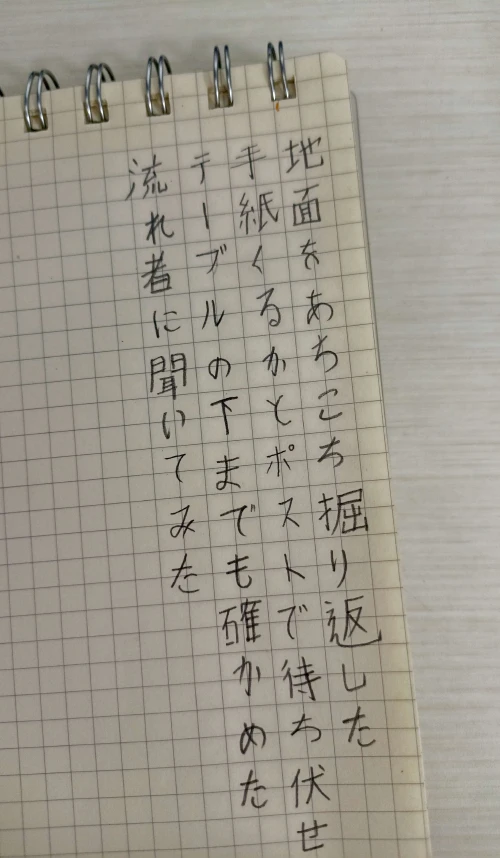 地面をあちこち掘り返した
手紙くるかとポストで待ち伏せ
テーブルの下までも確かめた
流れ者に聞いてみた